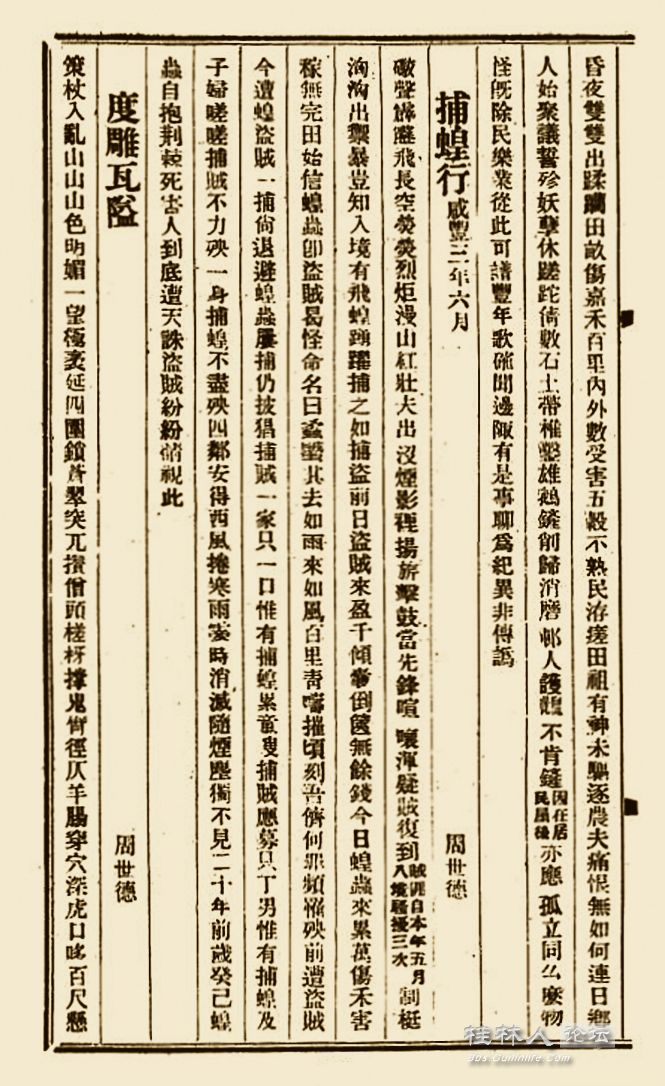 昏夜雙雙出蹂躪田畝傷嘉禾百里內外數受害五穀不熟民洊瘥田祖有神未驅逐農夫痛恨無如何連日鄉
人始聚議誓殄妖孽休蹉跎倚數石土帶椎鑿雄鵝鏟削歸消磨鄰人護不肯鏟因在居民屋後亦應孤立同么麼物
怪既除民樂業從此可譜豐年歌確聞邊陬有是事聊為紀異非傳譌
捕蝗行咸豐三年六月
周世德
礮聲霹靂飛長空熒熒烈炬漫山紅壯夫出沒煙影裡揚旂擊鼓當先鋒喧嚷渾疑賊復到賊匪自本年五月入境騷擾三次制梃
洶洶出禦暴豈知入境有飛蝗踴躍捕之如捕盜前日盜賊來盈千傾囊倒篋無餘錢今日蝗蟲來累萬傷禾害
稼無完田始信蝗蟲卽盜賊曷怪命名曰蟊其去如雨來如風百里靑疇摧頃刻吾儕何罪頻罹殃前遭盜賊
今遭蝗盜賊一捕尙退避蝗蟲屢捕仍披猖捕賊一家只一口惟有捕蝗累童叟捕賊應募只丁男惟有捕蝗及
子婦嗟嗟捕賊不力殃一身捕蝗不盡殃四鄰安得西風捲寒雨霎時消滅隨煙塵獨不見二十年前歲癸巳蝗
蟲自抱荆棘死害人到底遭天誅盜賊紛紛請視此
度雕瓦隘
周世德
策杖入亂山山山色明媚一望極袤延四圍鎖蒼翠突兀攢僧頭槎枒撐鬼臂徑仄羊腸穿穴深虎口哆百尺懸
桂林人论坛
bbs.Guilinlife.com